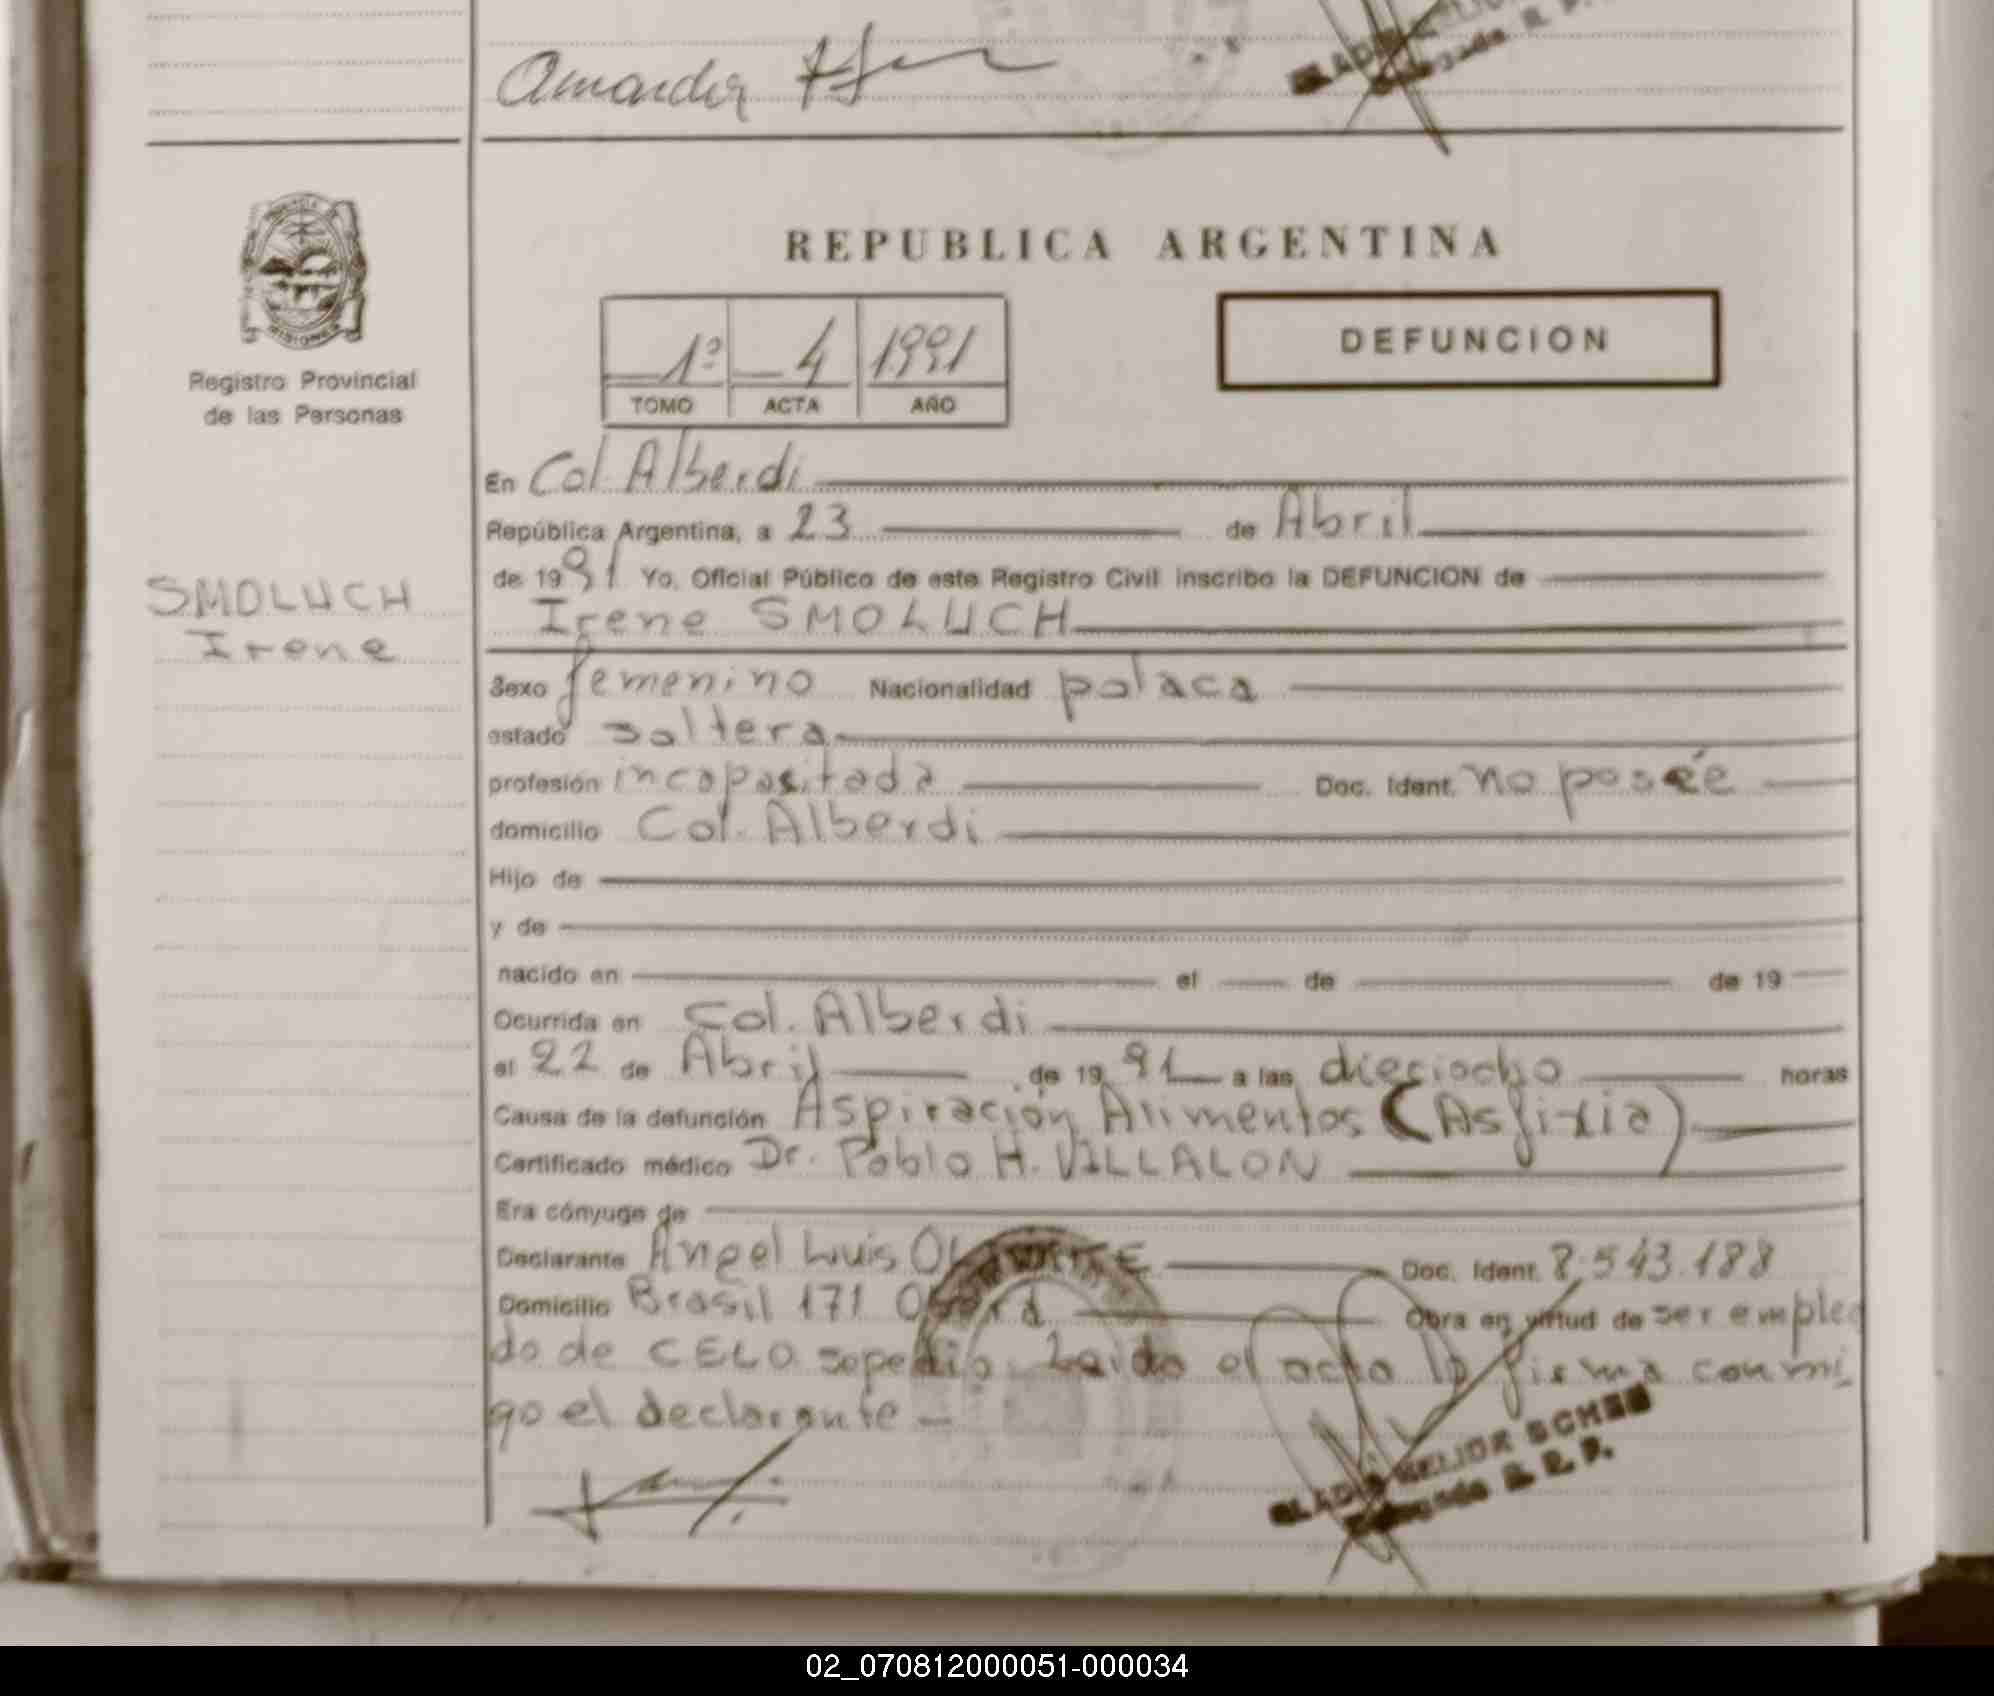 Amanda
REPUBLICA ARGENTINA
1º 4 1991
TOMO ACTA AÑO
DEFUNCION
Registro Provincial
de las Personas
En Col. Alberdi
República Argentina, a 23 de Abril
de 1991 Yo, Oficial Público de este Registro Civil inscribo la DEFUNCION de
SMOLUCH
Irene
Irene SMOLUCH
Sexo femenino Nacionalidad polaca
estado soltera
profesión incapasitada Doc. Ident. no posée
domicilio Col. Alberdi
Hijo de
y de
nacido en el de de 19
Ocurrida en Col. Alberdi
el 22 de Abril de 1991 a las dieciocho horas
Causa de la defunción Aspiración Alimentos (Asfixia)
Certificado médico Dr. Pablo H. VILLALON
Era cónyuge de
Declarante Angel Luis Doc. Ident. 8.543.188
Domicilio Brasil 171 Oberá Obra en virtud de ser emplea
do de CELO sepelio. Leido el acta la firma conmi
go el declarante
02_070812000051-000034